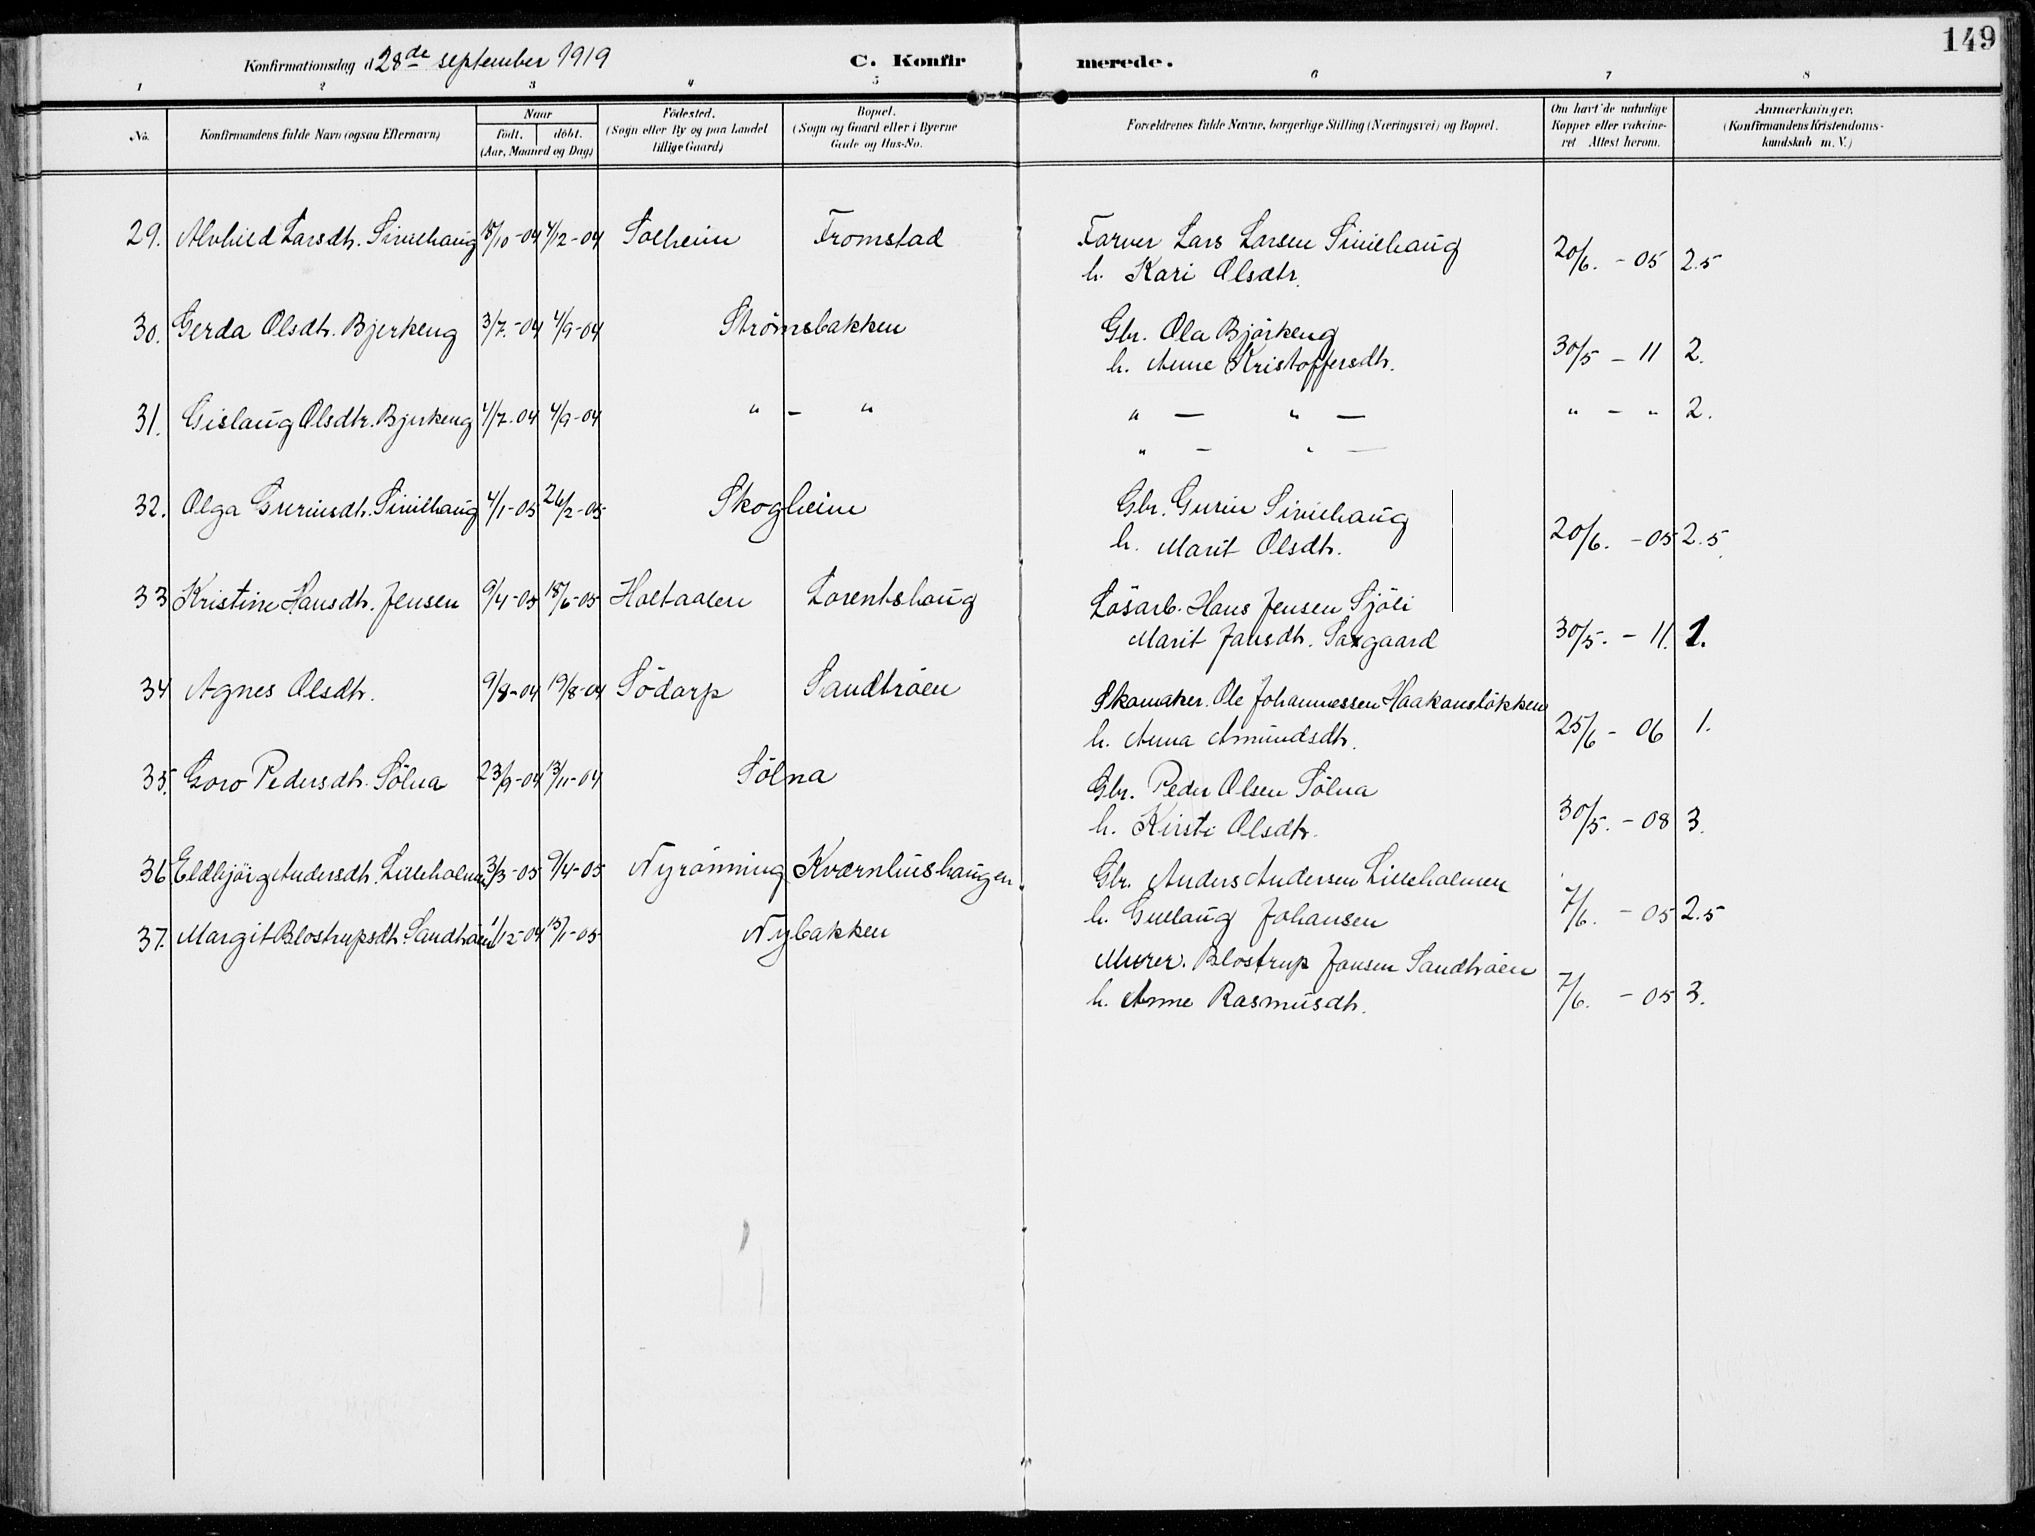 149
Konfirmationsdag d 28de september 1919
C. Konfirmerede.
1 2 3 4 5 6 7 8
No. Konfirmandens fulde Navn (ogsaa Efternavn) Naar født. døbt. (Aar, Maaned og Dag) Fødested. (Sogn eller By og paa Landet tillige Gaard) Bopæl. (Sogn og Gaard eller i Byerne Gade og Hus-No. Forældrenes fulde Navne, borgerlige Stilling (Næringsvei) og Bopæl. Om havt de naturlige Kopper eller vakcineret. Attest herom. Anmærkninger. (Konfirmandens Kristendomskundskab m. V.)
29. Alvhild Larsdtr. Sivilhaug 18/10-04 4/12-04 Solheim Tromstad Farver Lars Larsen Sivilhaug
h. Kari Olsdtr. 20/6. - 05 2.5
30. Gerda Olsdtr. Bjerkeng 3/7.-04 4/9-04 Strømsbakken Gbr. Ola Björkeng
h. Anne Kristoffersdtr. 30/5 - 11 2.
31. Gislaug Olsdtr. Bjerkeng 4/7-04 4/9-04 " - " " — " — " - " 2.
" — " —
32. Olga Gurinsdtr. Sivilhaug 4/1-05 26/2-05 Skogheim Gbr. Gurin Sivilhaug
h. Marit Olsdtr. 20/6. - 05 2.5
33 Kristine Hansdtr. Jensen 9/4-05 18/6-05 Holtaalen Lorentshaug Lösarb. Hans Jensen Sjöli
Marit Jansdtr. Saxgaard 30/5. - 11. 1.
34 Agnes Olsdtr. 9/8-04 19/8-04 Södorp Sandtröen Skomaker. Ole Johannessen Haakonslökken
h. Anna Amundsdtr. 25/6 - 06 1.
35. Goro Pedersdtr. Sölna 23/9-04 13/11-04 Sölna Gbr. Peder Olsen Sölna
h. Kirsti Olsdtr. 30/5. - 08 3.
36 Eldbjörg Andersdtr. Lilleholmen 3/3-05 9/4-05 Nyrönning Kværnhushaugen Gbr. Anders Andersen Lilleholmen
h. Gullaug Johansen 7/6. - 05 2.5
37. Margit Blostrupsdtr. Sandtröen 1/12-04 15/1-05 Nybakken Murer. Blostrup Jansen Sandtröen
h. Anne Rasmusdtr. 7/6. - 05 3.